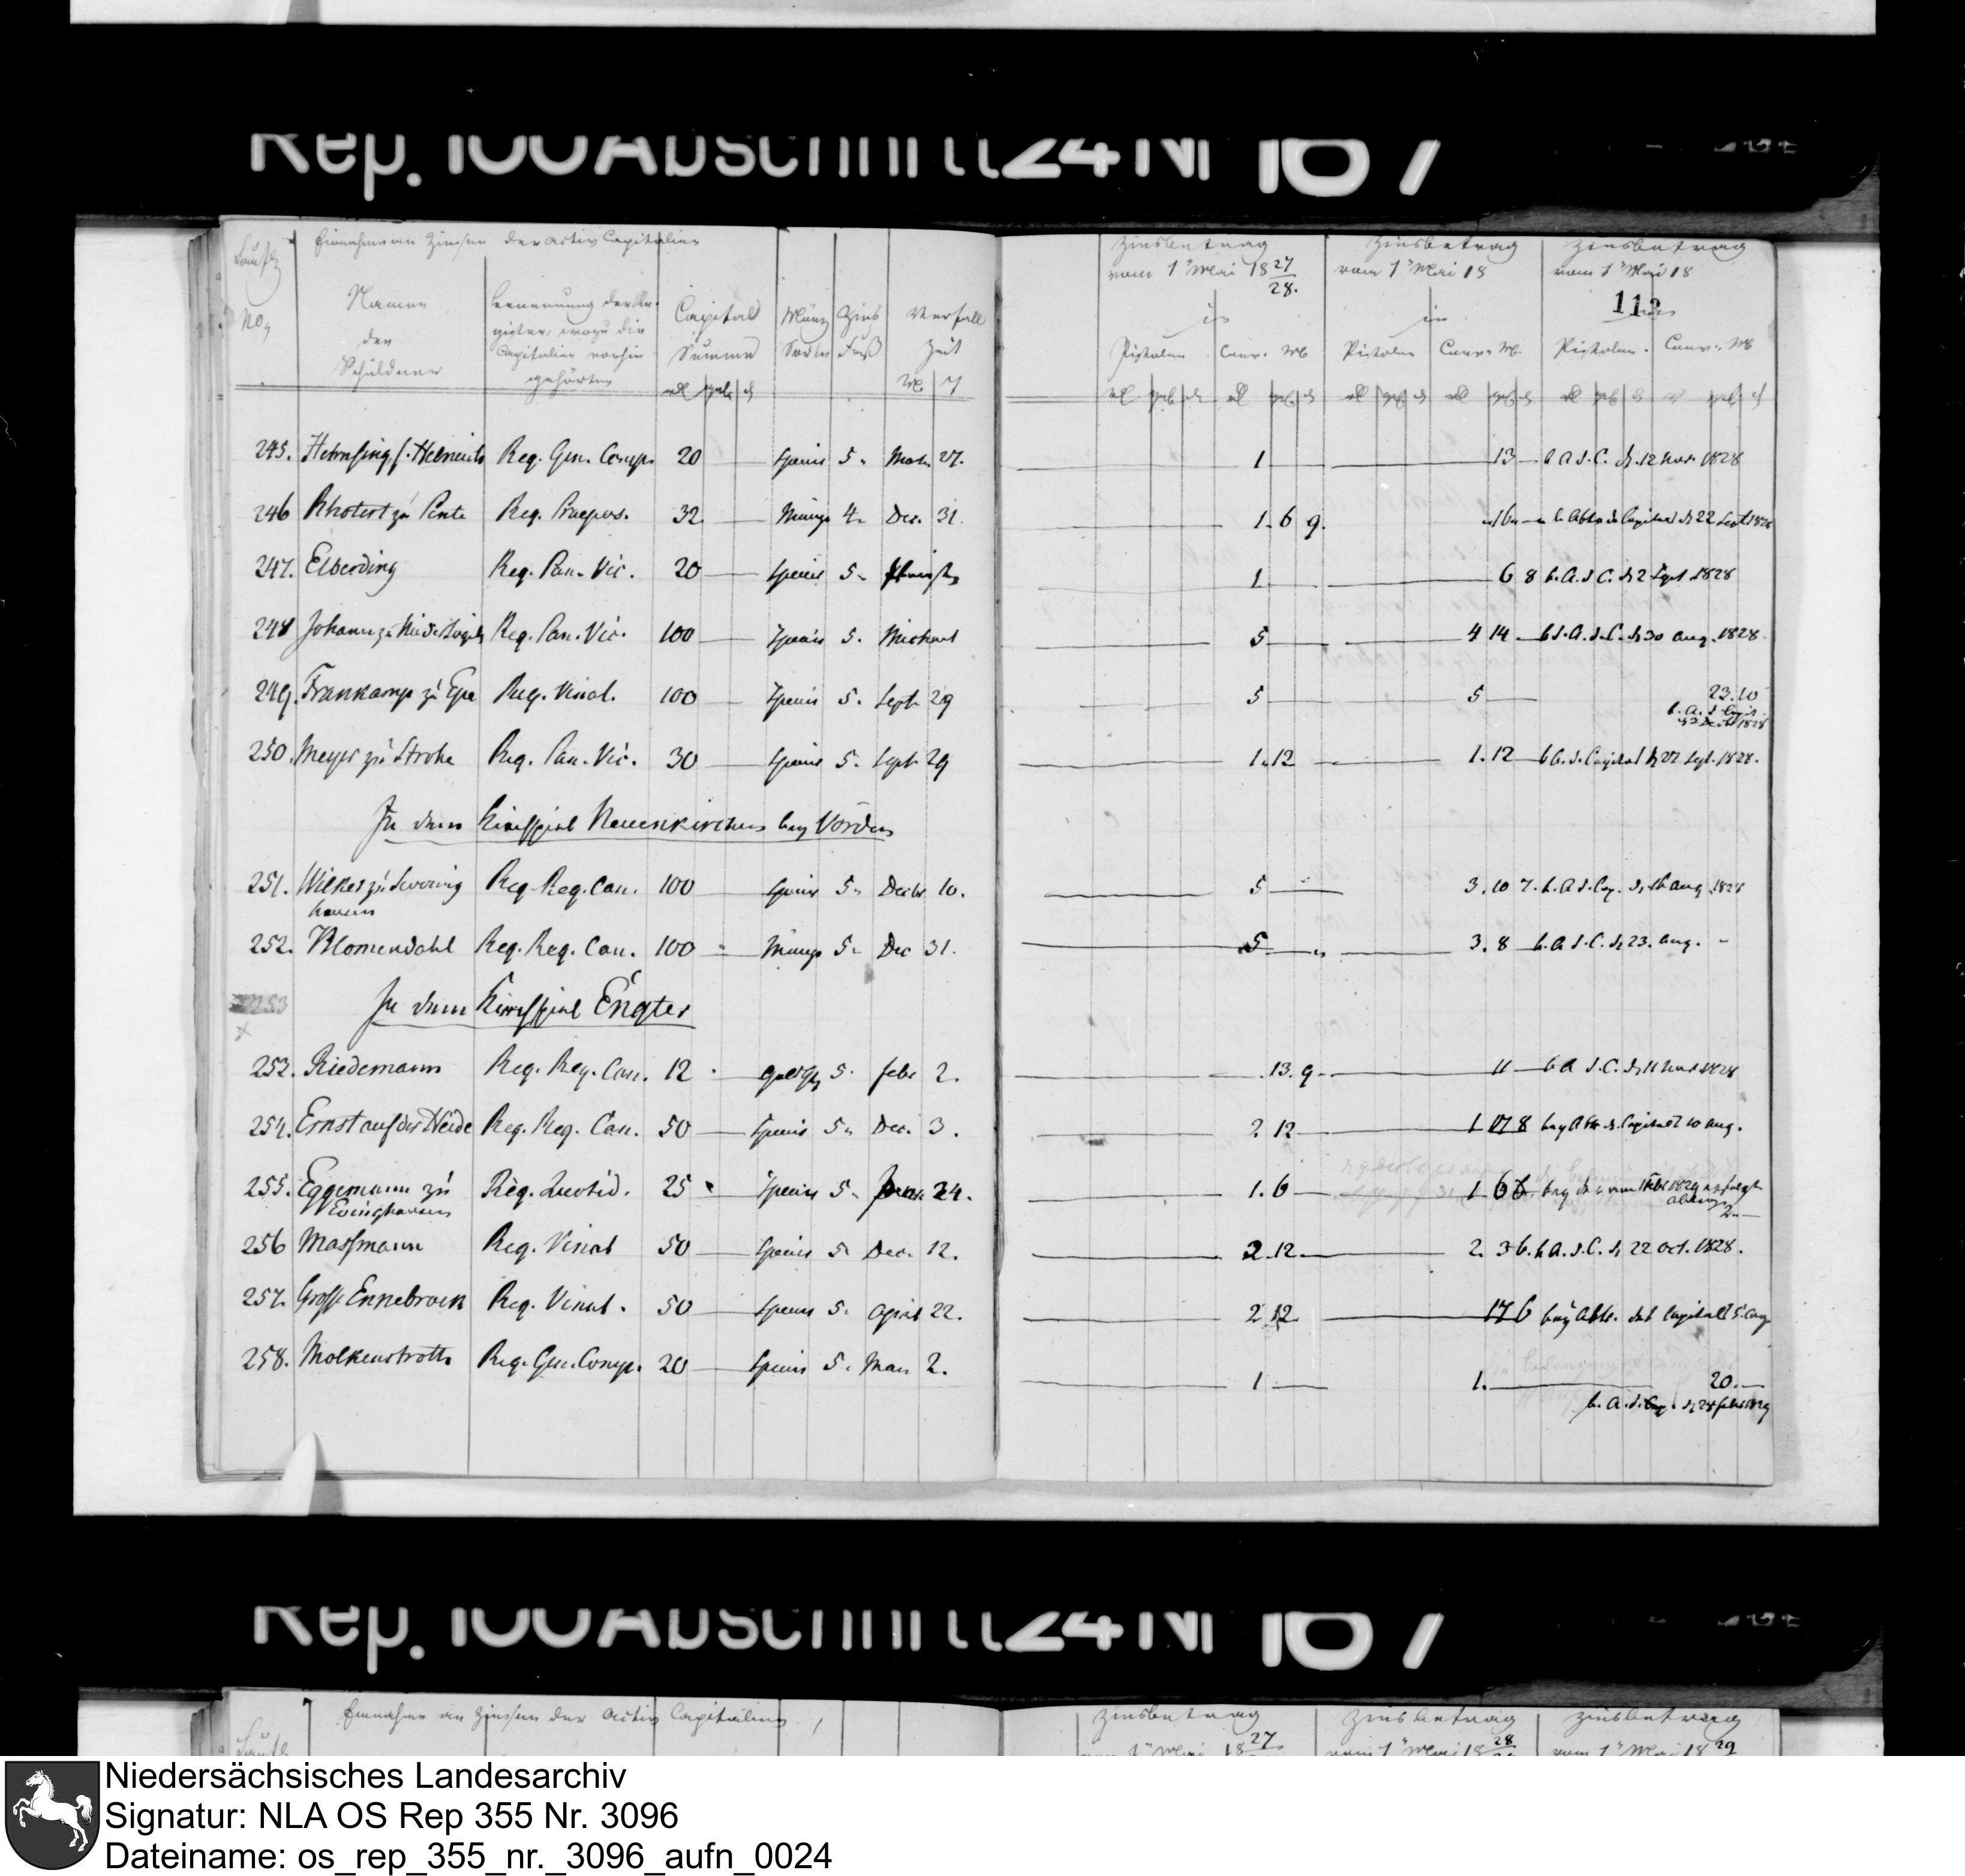 Rep. 100 Abschnitt 24 Nr 167
Einnahme an Zinsen der activ Capitalien
Laufd
No,
Namen
der
Schuldner
Benennung der Re-
gister, wozu die
Capitalien vorhin
gehörten
Capital
Summe
Münz
Sorten
Zins
Fuß
Verfall
Zeit
Zinsbetrag
vom 1ⁿ Mai 18 27/28.
in
Pistolen
Conv. M
Zinsbetrag
vom 1ⁿ Mai 18
in
Pistolen
Conv. M.
Zinsbetrag
vom 1ⁿ Mai 18
112
Pistolen.
Conv. M
245. Reg. Gen. Comp. 20 Species 5. 27. 1 13 b A d. C. d. 12 Nov. 1828
246 Rhotert zu Pente Reg. Praepos. 32 Münze 4. Dec. 31. 1. 6 9. 16 b. Abtr d Capitals d 22 Sept 1828
247. Elberding Reg. Pan. Vic. 20 Species 5. 1 6 8 b. A. d C. d 2 Sept 1828
248 Johann zu Reg. Pan. Vic. 100 Species 5. Michael 5 4 14 b A. d. C. d 30 Aug. 1828.
249. Frankamp zu Epe Reg. Vinal. 100 Species 5. Sept 29 5 5 23. 10
b. A. d Capit.
1828
250. Meyer zu Strohe Reg. Pan. Vic. 30 Species 5. Sept 29 1. 12 1. 12 b A. d. Capital d 27 Sept. 1828.
In dem Kirchspiel Neuenkirchen bey Vörden
251. Wilker zu Reg. Reg. Can. 100 Species 5. Decbr 10. 5 3. 10 7. b. A d. Cap. d. 16 Aug 1828
hausen
252. Blomendahl Reg. Reg. Can. 100 Münze 5. Dec 31. 5 3. 8 b. A. d. C. d 23. Aug.
253 In dem Kirchspiel Engter
253. Riedemann Reg. Reg. Can. 12 5. Febr 2. 13. 9. 11 b A d. C. d 11 Nov 1828
254. Ernst auf der Heide Reg. Reg. Can. 50 Species 5. Dec. 3. 2 12 1 17 8 bey Abtr. d. Capitals 10 Aug.
255. Eggemann zu Reg. Quotid. 25 Species 5. 24. 1. 6 1 6 1829 erfolgt
Evinghausen 2.
256 Massmann Reg. Vinal 50 Species 5. Dec. 12. 2 12. 2. 3 6. b A. d. C. d 22 Oct. 1828.
257. Große Ennebrock Reg. Vinal. 50 Species 5. April 22. 2 12 17 6 bey Abtr. des Capitals 5 Aug
258. Molkenstroth Reg. Gen. Comp. 20 Species 5. 2. 1 1. 20.
b. A. d. Cap. d 28 Febr 1829
Rep. 100 Abschnitt 24 Nr 167
Einnahme an Zinsen der activ Capitalien
Zinsbetrag
vom 1ⁿ Mai 18 27
Zinsbetrag
vom 1ⁿ Mai 18 28
Zinsbetrag
vom 1ⁿ Mai 18 29
Niedersächsisches Landesarchiv
Signatur: NLA OS Rep 355 Nr. 3096
Dateiname: os_rep_355_nr._3096_aufn_0024